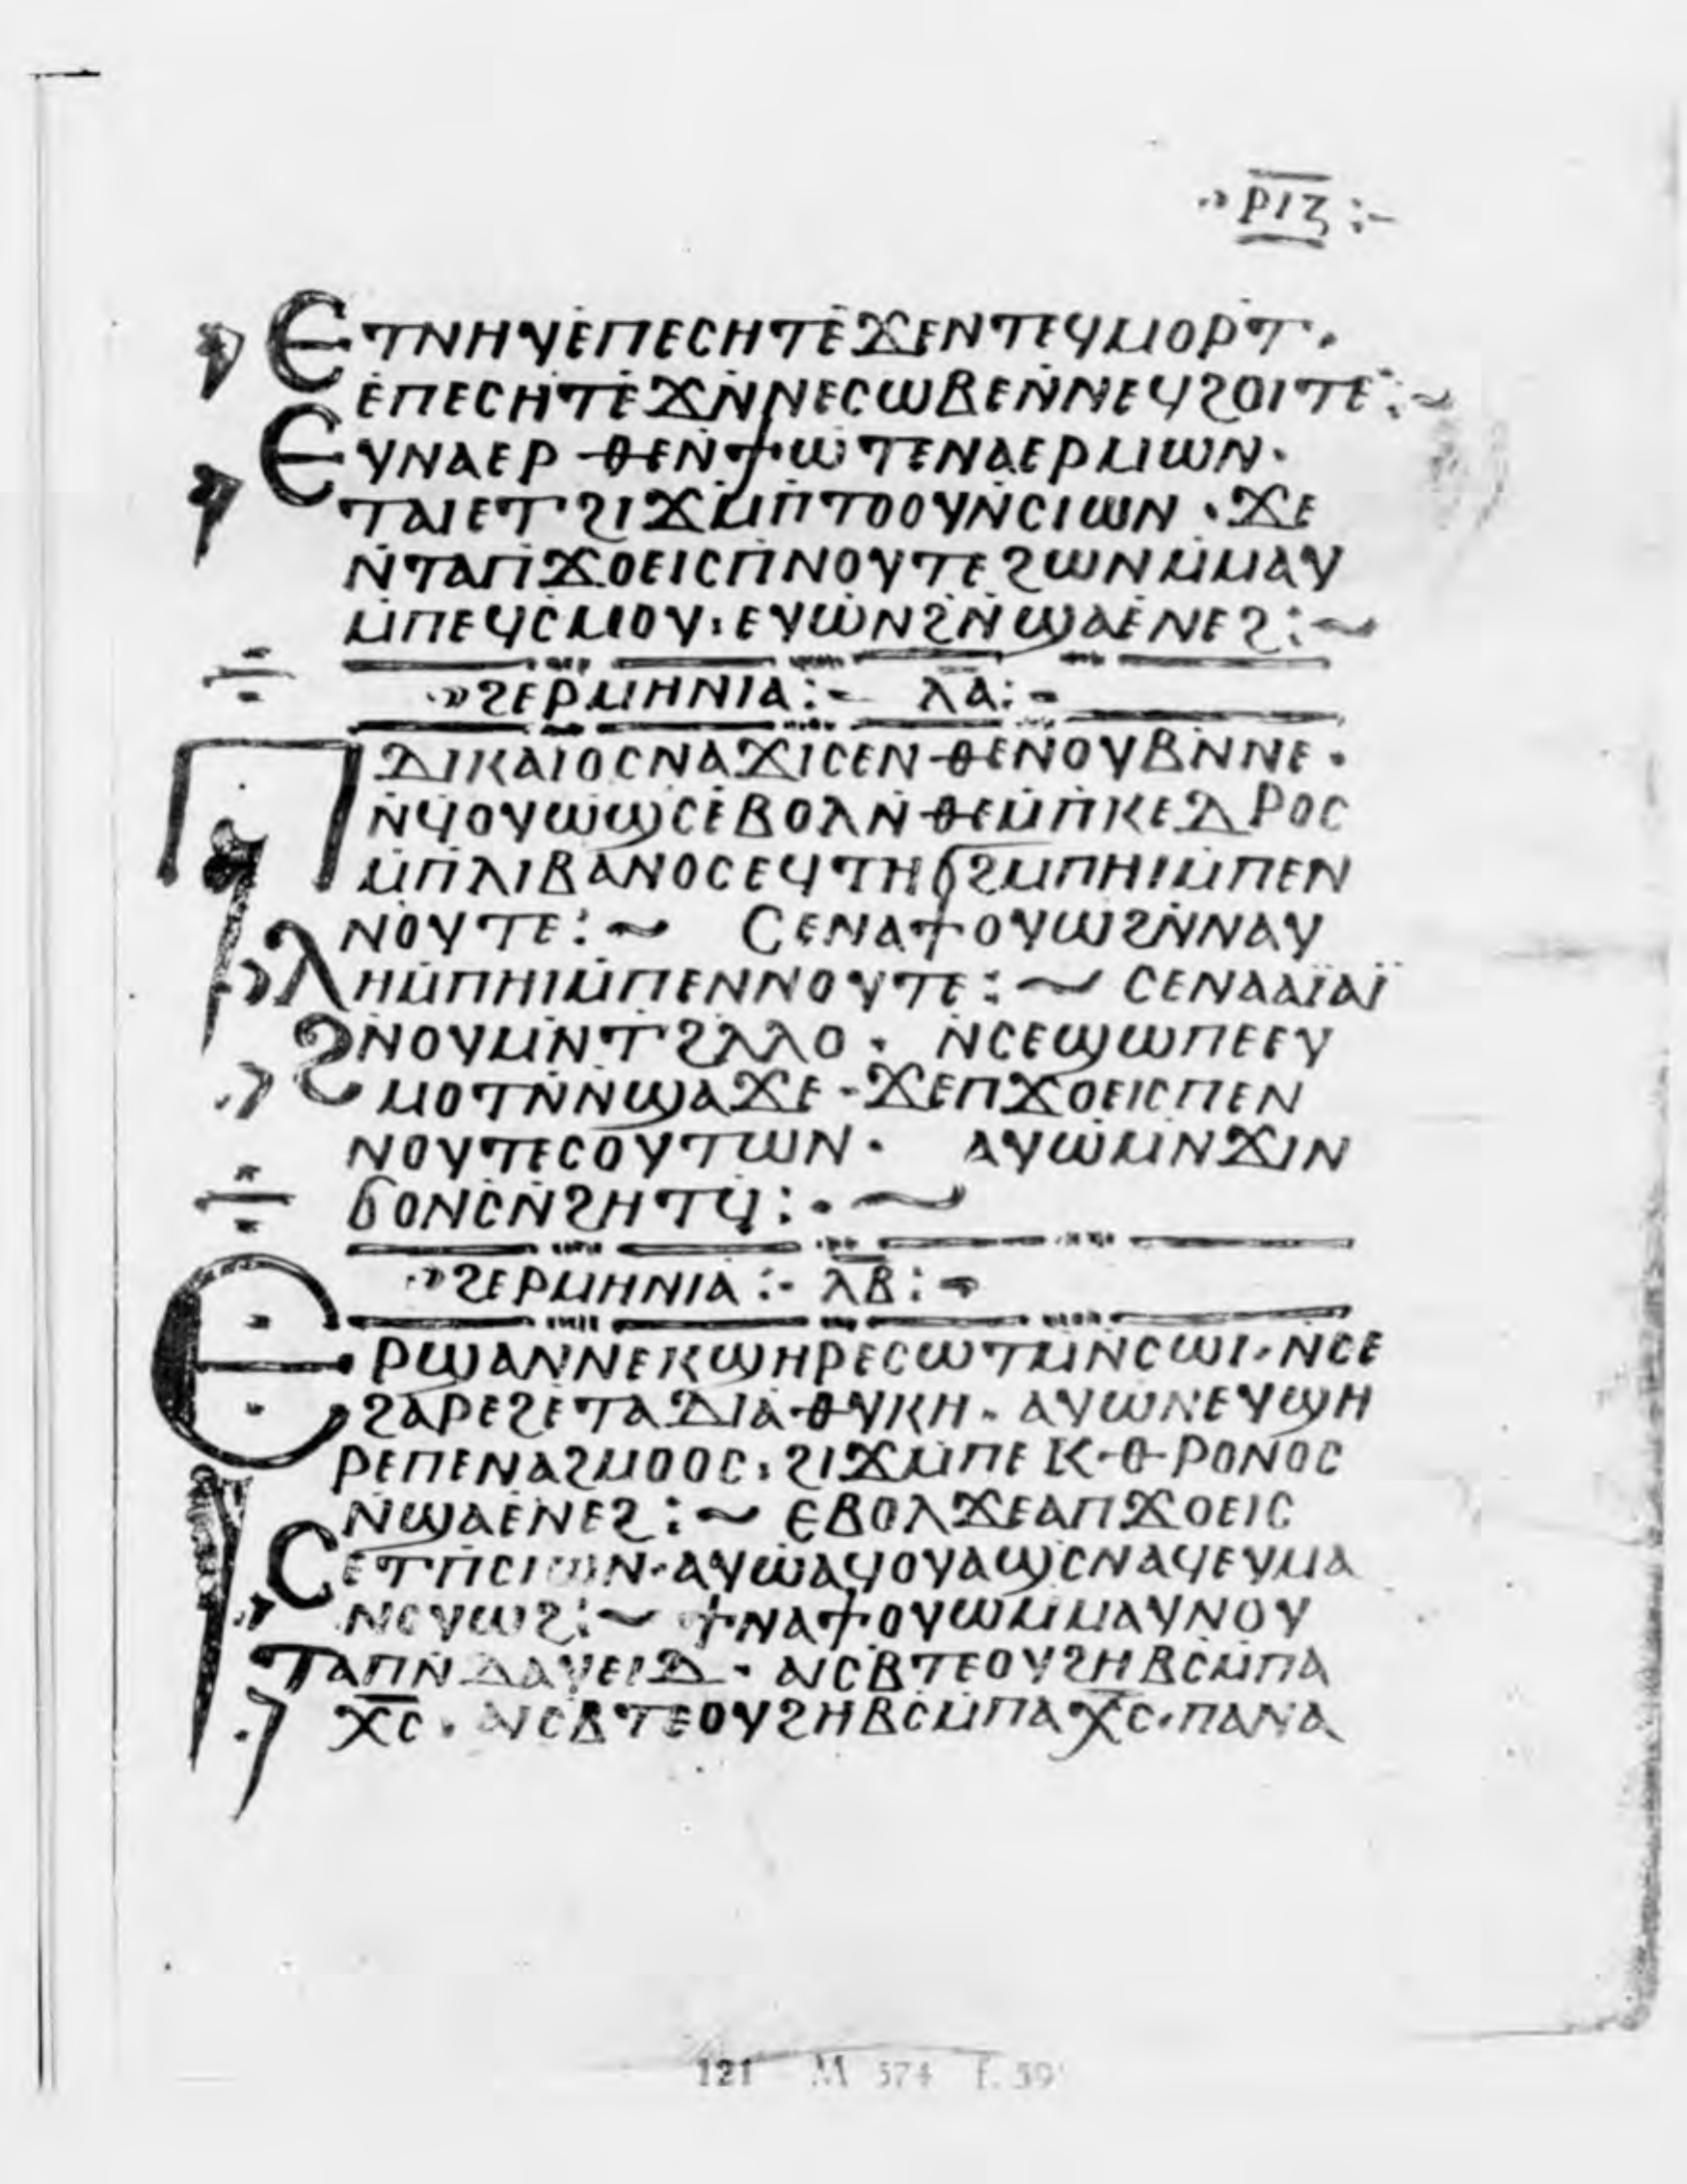 ⲣⲓⲍ
ⲉⲧⲛⲏⲩⲉⲡⲉⲥⲏⲧⲉϫⲉⲛⲧⲉϥⲙⲟⲣⲧ·
ⲉⲡⲉⲥⲏⲧⲉϫⲛⲛⲉⲥⲱⲃⲉⲛⲛⲉϥϩⲟⲓⲧⲉ:~
ⲉⲩⲛⲁⲉⲣⲑⲉⲛϯⲱⲧⲉⲛⲁⲉⲣⲙⲱⲛ·
ⲧⲁⲓⲉⲧϩⲓϫⲙⲡⲧⲟⲟⲩⲛⲥⲓⲱⲛ·ϫⲉ
ⲛⲧⲁⲡϫⲟⲉⲓⲥⲡⲛⲟⲩⲧⲉϩⲱⲛⲙⲙⲁⲩ
ⲙⲡⲉϥⲥⲙⲟⲩ·ⲉⲩⲱⲛϩⲛϣⲁⲉⲛⲉϩ:~
ϩⲉⲣⲙⲏⲛⲓⲁ:- ⲗⲁ:-
ⲡⲇⲓⲕⲁⲓⲟⲥⲛⲁϫⲓⲥⲉⲛⲑⲉⲛⲟⲩⲃⲛⲛⲉ·
ⲛϥⲟⲩⲱϣⲥⲉⲃⲟⲗⲛⲑⲉⲙⲡⲕⲉⲇⲣⲟⲥ
ⲙⲡⲗⲓⲃⲁⲛⲟⲥⲉϥⲧⲏϭϩⲙⲡⲏⲓⲙⲡⲉⲛ
ⲛⲟⲩⲧⲉ:~ ⲥⲉⲛⲁϯⲟⲩⲱϩⲛⲛⲁⲩ
ⲗⲏⲙⲡⲏⲓⲙⲡⲉⲛⲛⲟⲩⲧⲉ:~ ⲥⲉⲛⲁⲁⲓ̈ⲁⲓ̈
ϩⲛⲟⲩⲙⲛⲧϩⲗⲗⲟ· ⲛⲥⲉϣⲱⲡⲉⲉⲩ
ⲙⲟⲧⲛⲛϣⲁϫⲉ-ϫⲉⲡϫⲟⲉⲓⲥⲡⲉⲛ
ⲛⲟⲩⲧⲉⲥⲟⲩⲧⲱⲛ· ⲁⲩⲱⲙⲛϫⲓⲛ
ϭⲟⲛⲥⲛϩⲏⲧϥ:·~
ϩⲉⲣⲙⲏⲛⲓⲁ:- ⲗⲃ:-
ⲉⲣϣⲁⲛⲛⲉⲕϣⲏⲣⲉⲥⲱⲧⲙⲛⲥⲱⲓ·ⲛⲥⲉ
ϩⲁⲣⲉϩⲉⲧⲁⲇⲓⲁⲑⲩⲕⲏ·ⲁⲩⲱⲛⲉⲩϣⲏ
ⲣⲉⲡⲉⲛⲁϩⲙⲟⲟⲥ·ϩⲓϫⲙⲡⲉⲕⲑⲣⲟⲛⲟⲥ
ⲛϣⲁⲉⲛⲉϩ:~ ⲉⲃⲟⲗϫⲉⲁⲡϫⲟⲉⲓⲥ
ⲥⲉⲧⲡⲥⲓⲱⲛ·ⲁⲩⲱⲁϥⲟⲩⲁϣⲥⲛⲁϥⲉⲩⲙⲁ
ⲛⲟⲩⲱϩ:~ ϯⲛⲁϯⲟⲩⲱⲙⲙⲁⲩⲛⲟⲩ
ⲧⲁⲡⲛⲇⲁⲩⲉⲓⲇ· ⲁⲓⲥⲃⲧⲉⲟⲩϩⲏⲃⲥⲙⲡⲁ
ⲭⲥ· ⲁⲓⲥⲃⲧⲉⲟⲩϩⲏⲃⲥⲙⲡⲁⲭⲥ·ⲡⲁⲛⲁ
121 M 574 f. 59